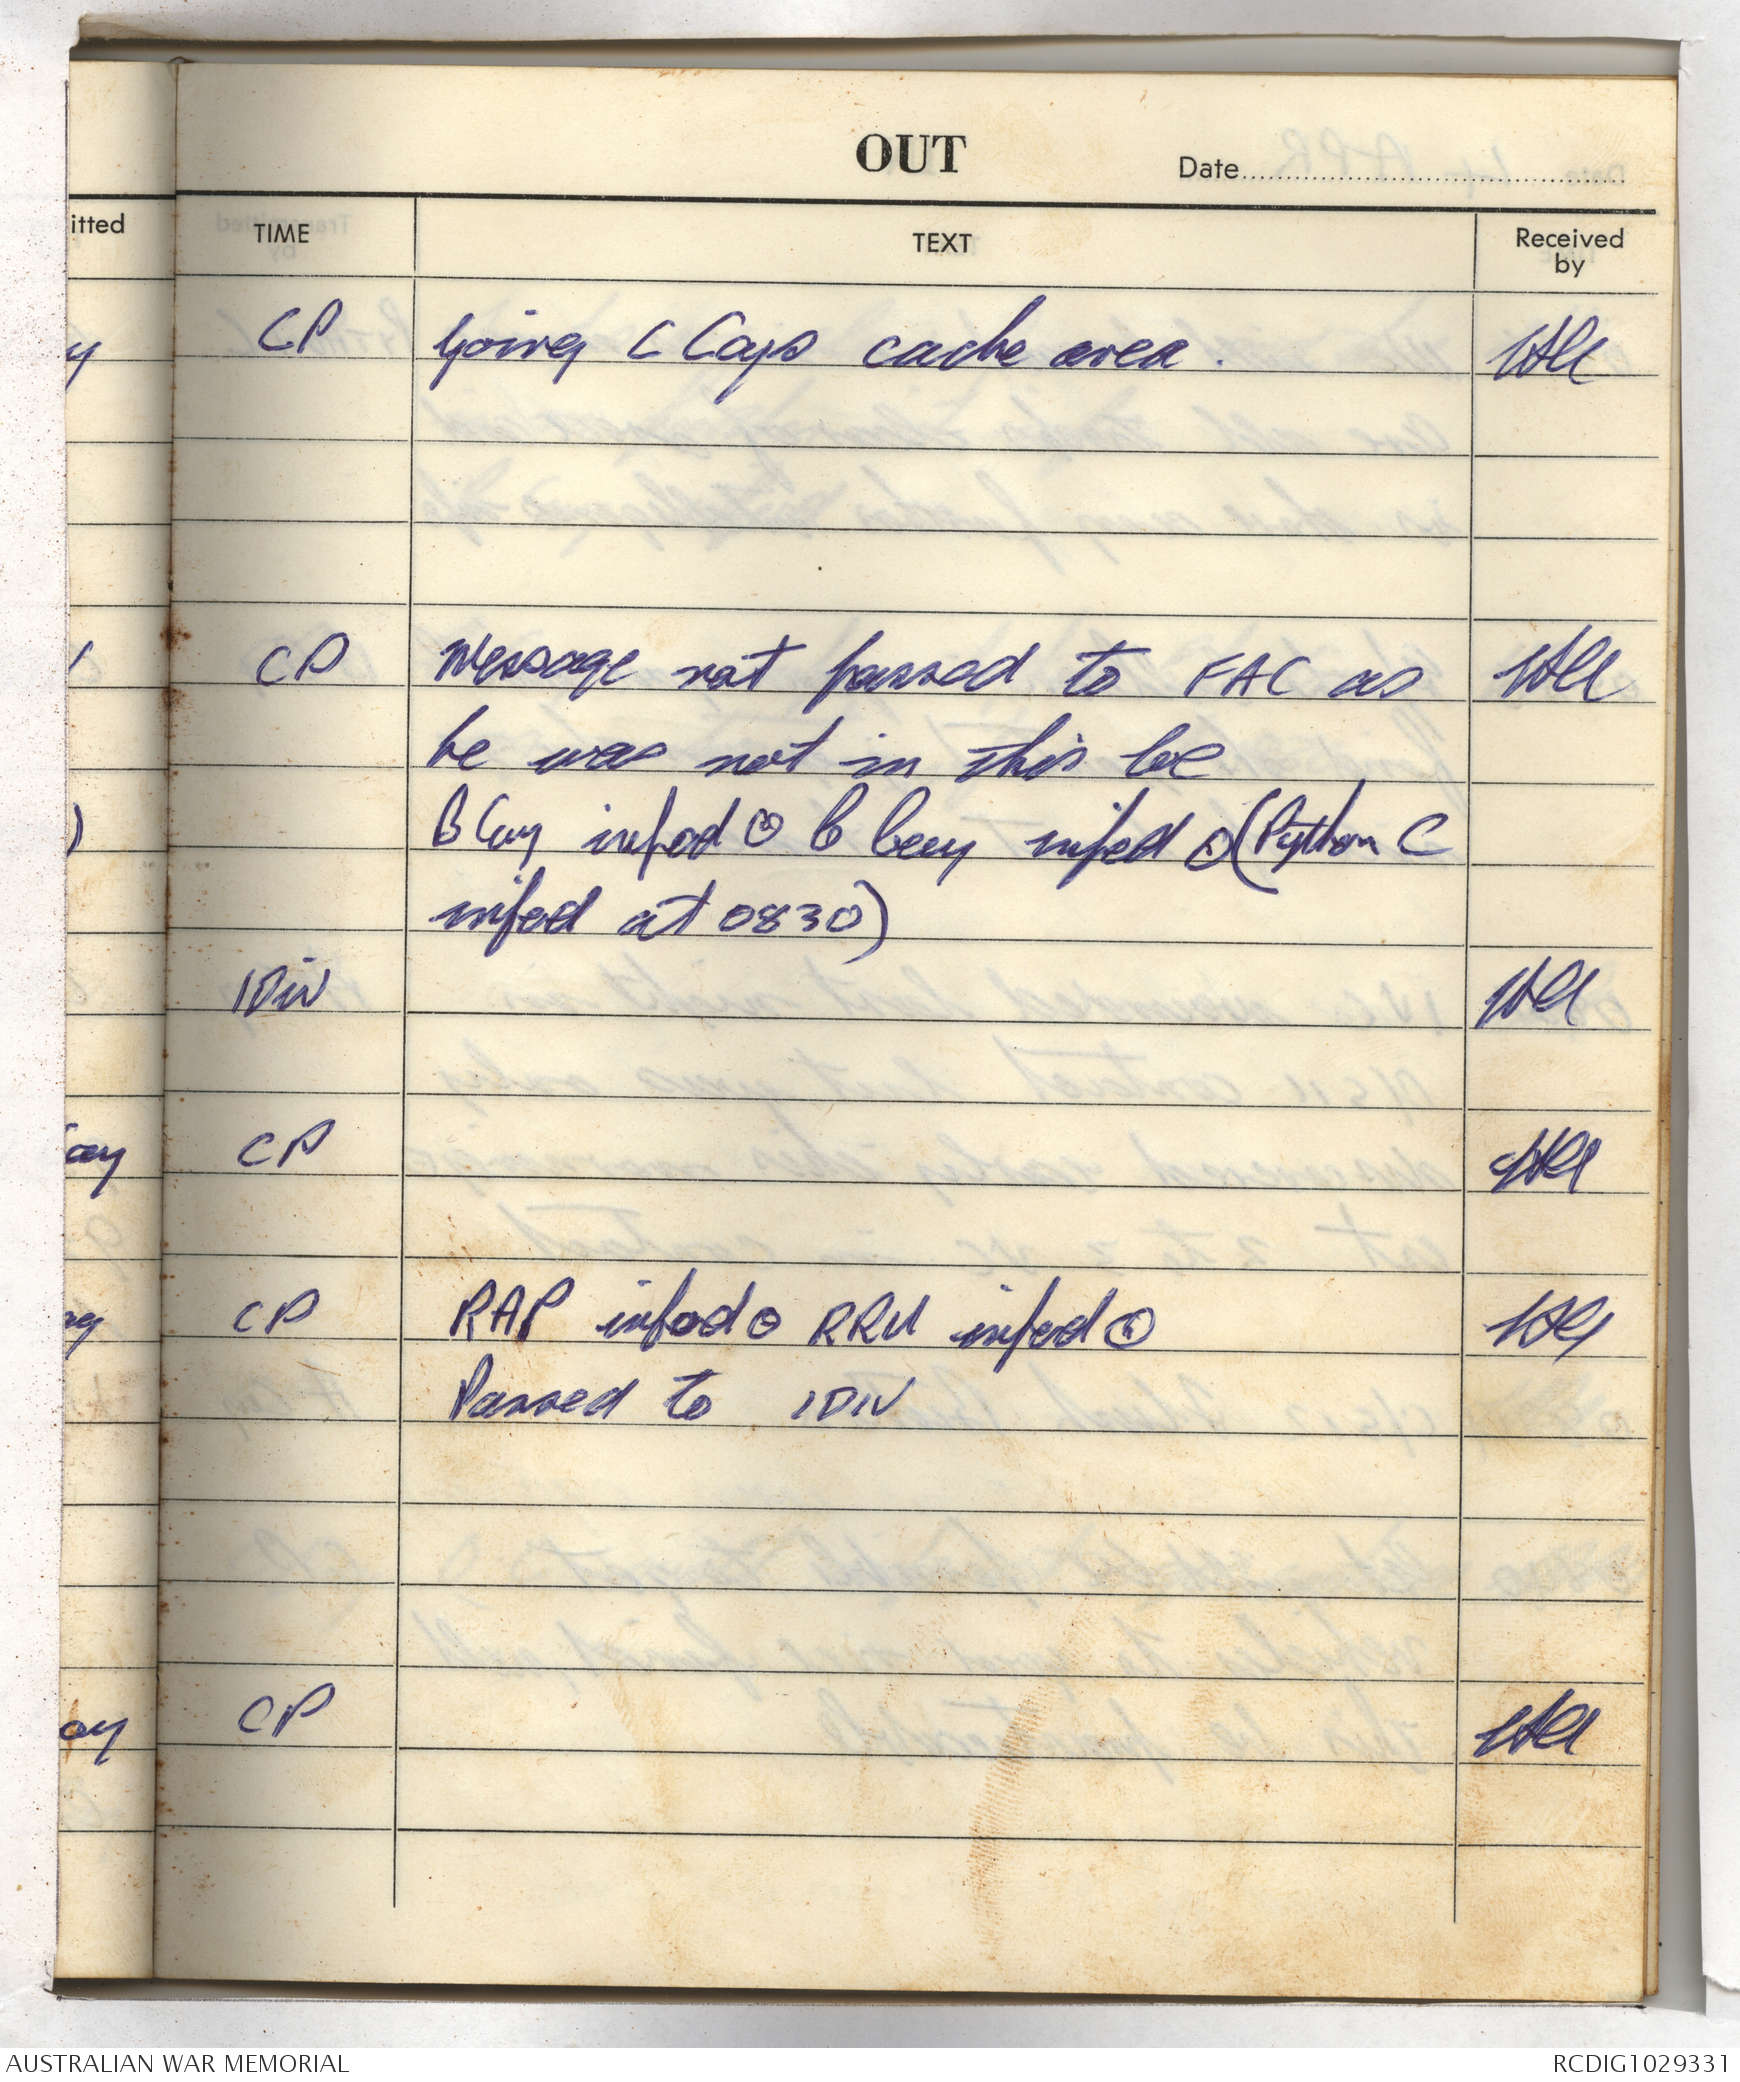 OUT
Date
itted
TIME
TEXT
Received
by
CP going C Coys cache area.
CP Message not passed to FAC as
he was not in this loc
B Coy infod ⊙ infed ⊙ (Python C
infod at 0830)
1Div
oy CP
CP RAP infod ⊙ RRU infod ⊙
Passed to 1DIV
oy CP
AUSTRALIAN WAR MEMORIAL
RCDIG1029331